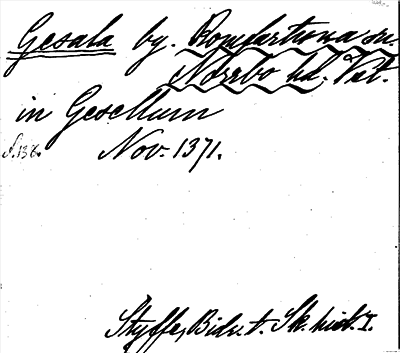 Gesala by. Romfartuna sn.
Norrbo hd. Vstl.
in Gesellum
s. 136. Nov. 1371.
Styffe, Bidr. t. Sk. hist. I.